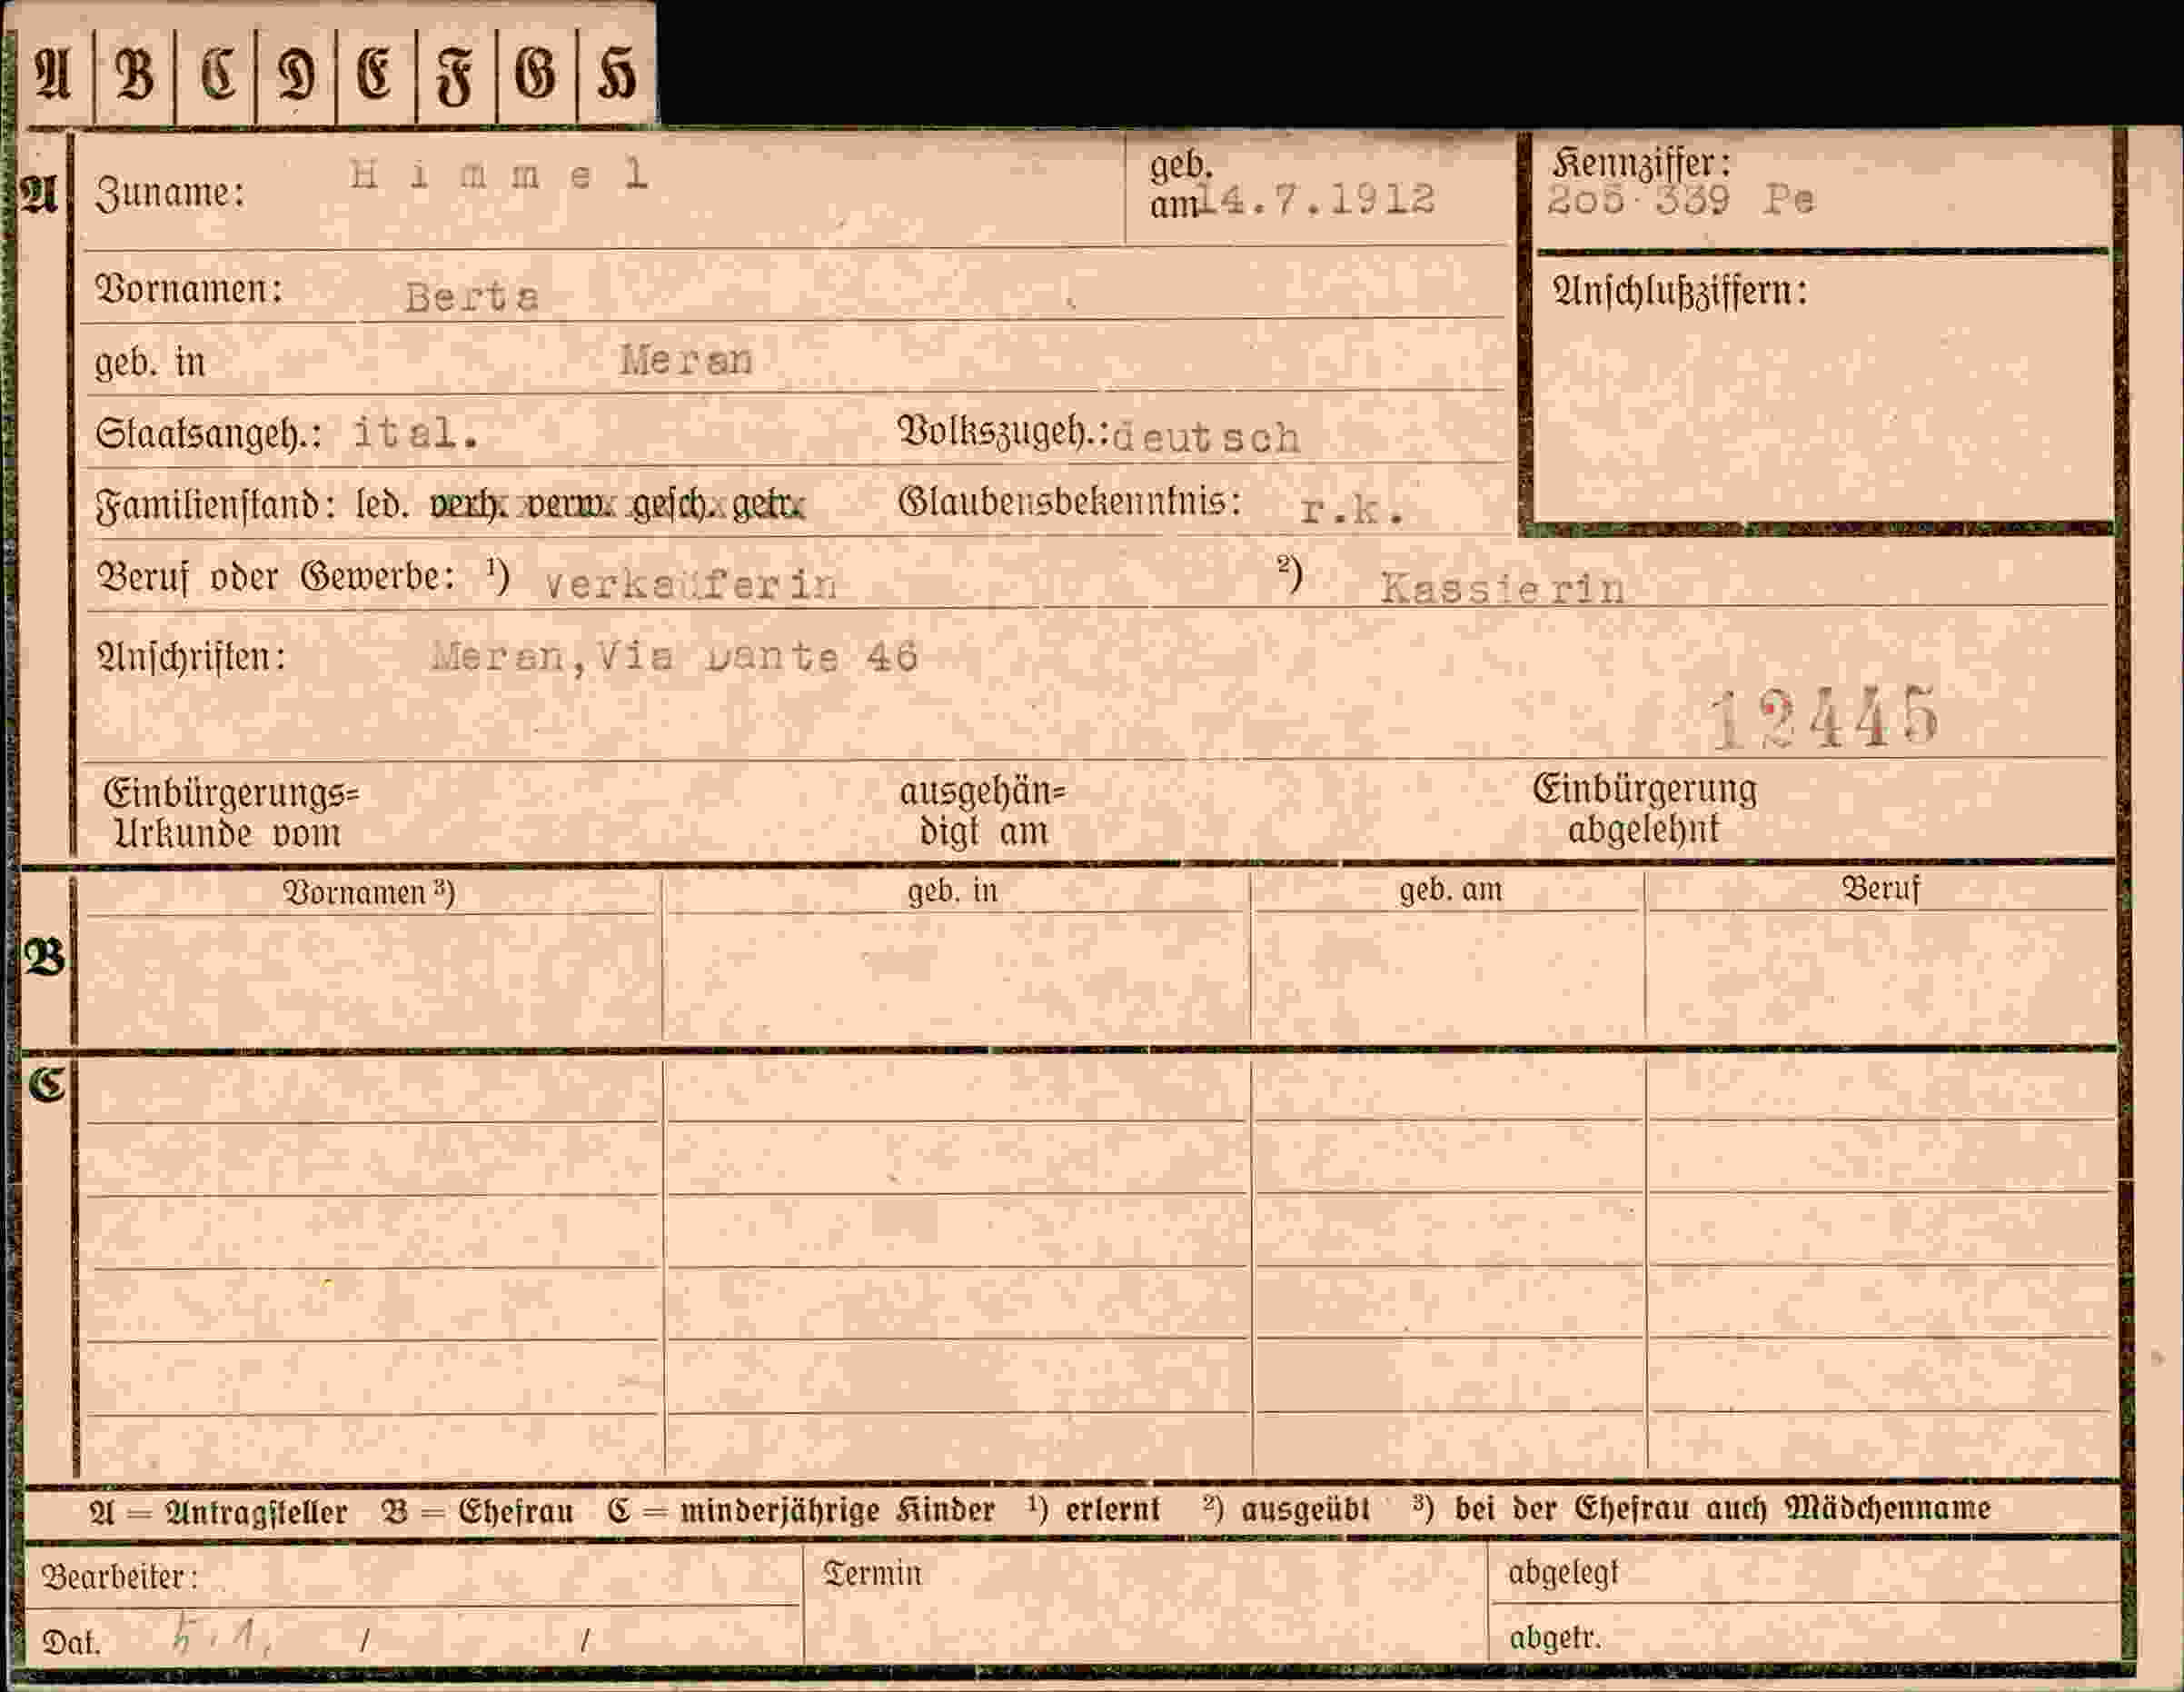 A B C D E F G H
A Zuname: Himmel geb. am 14.7.1912 Kennziffer: 205 339 Pe
Vornamen: Berta Anschlußziffern:
geb. in Meran
Staatsangeh.: ital. Volkszugeh.: deutsch
Familienstand: led. verh. verw. gesch. getr. Glaubensbekenntnis: r.k.
Beruf oder Gewerbe: ¹) Verkäuferin ²) Kassierin
Anschriften: Meran, Via Dante 46
12445
Einbürgerungs= ausgehän= Einbürgerung
Urkunde vom digt am abgelehnt
Vornamen ³) geb. in geb. am Beruf
B
C
A = Antragsteller B = Ehefrau C = minderjährige Kinder ¹) erlernt ²) ausgeübt ³) bei der Ehefrau auch Mädchenname
Bearbeiter: Termin abgelegt
Dat. 5.1. / / abgetr.